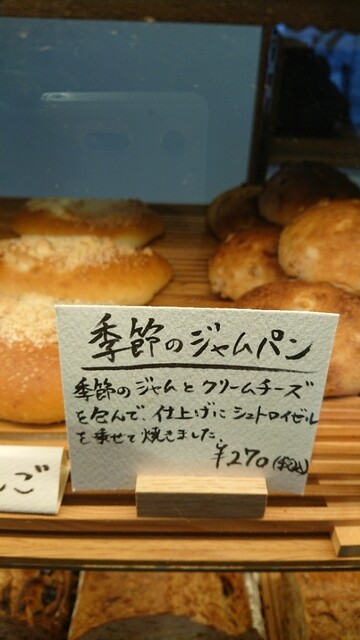 季節のジャムパン
季節のジャムとクリームチーズ
を包んで、仕上げにシュトロイゼル
を乗せて焼きました。
¥270(税込)
んご